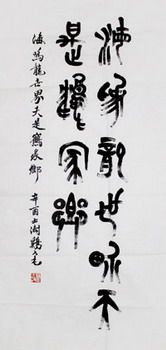 海為龍世界天
是鶴家鄉
海為龍世界天是鶴家鄉
辛酉